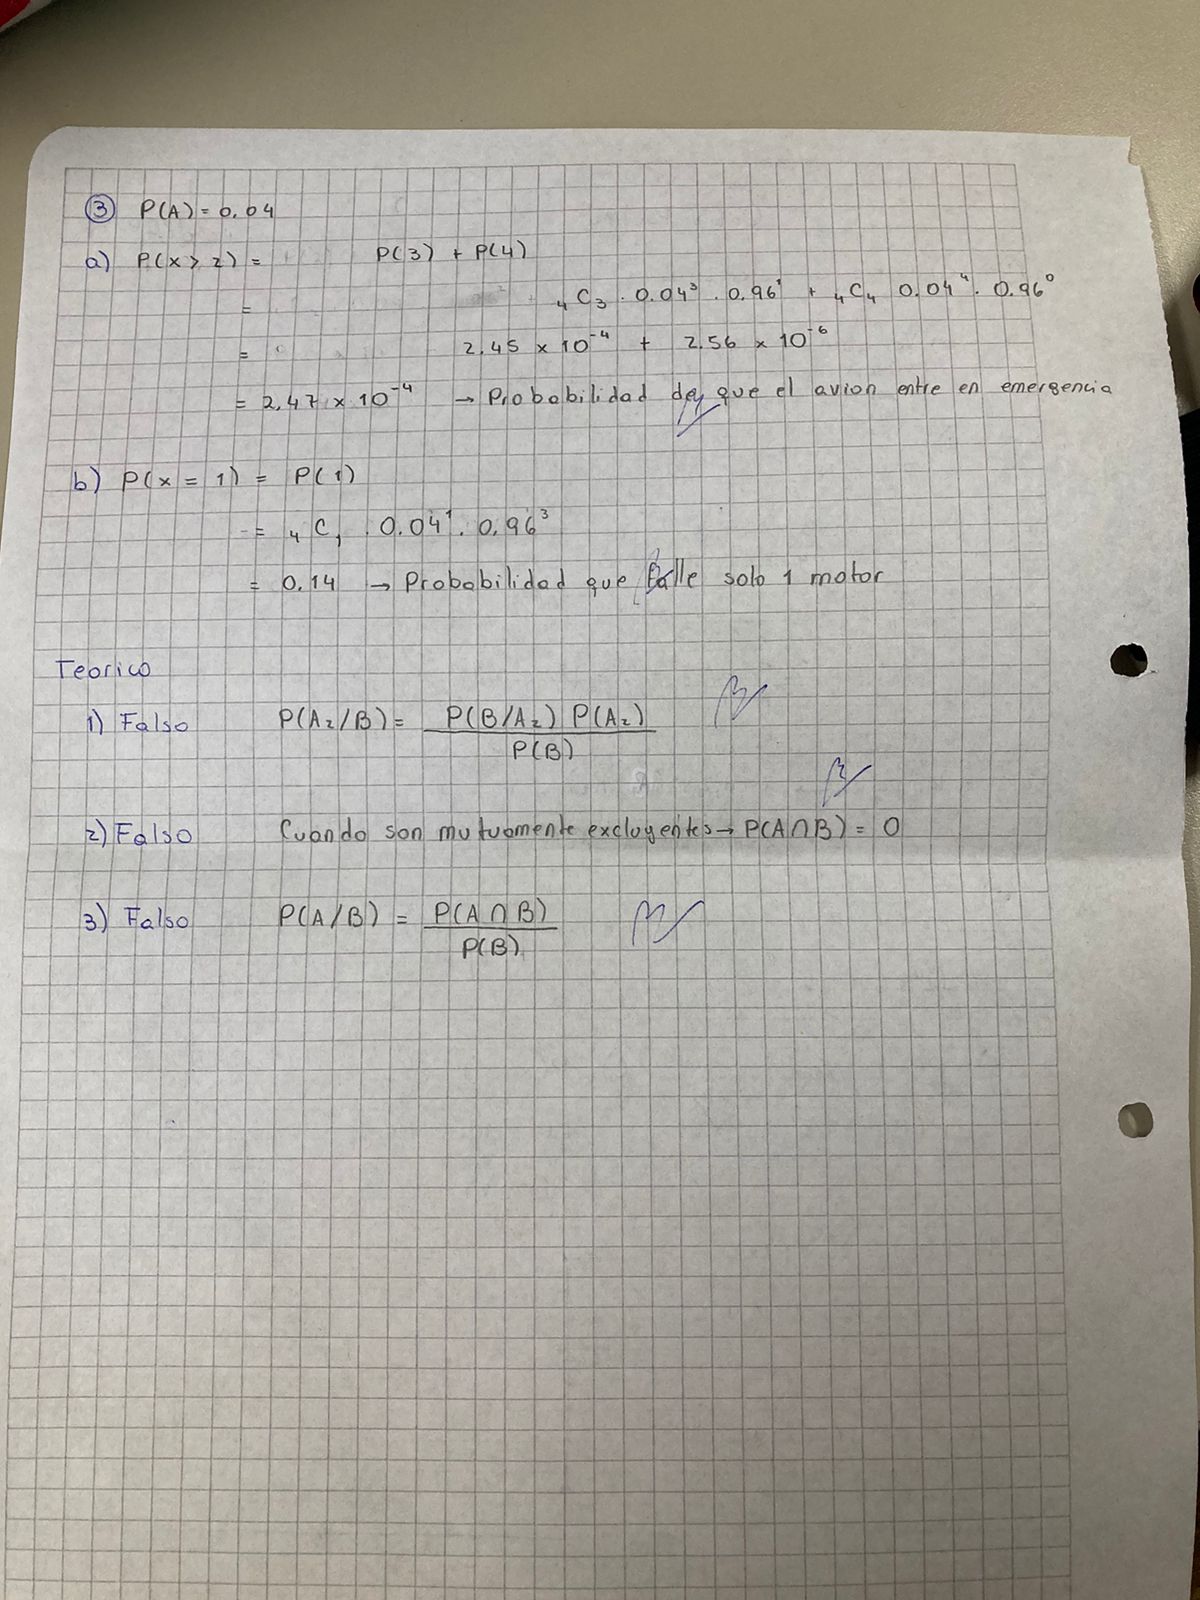 ③ P(A) = 0.04
a) P(x > 2) = P(3) + P(4)
= ₄C₃ . 0.04³ . 0.96¹ + ₄C₄ 0.04⁴ . 0.96⁰
= 2.45 × 10⁻⁴ + 2.56 × 10⁻⁶
= 2.47 × 10⁻⁴ → Probabilidad de que el avion entre en emergencia
b) P(x = 1) = P(1)
= ₄C₁ . 0.04¹ . 0.96³
= 0.14 → Probabilidad que falle solo 1 motor
Teorico
1) Falso P(A₂/B) = P(B/A₂) P(A₂)
P(B)
2) Falso Cuando son mutuamente excluyentes → P(A∩B) = 0
3) Falso P(A/B) = P(A ∩ B)
P(B)